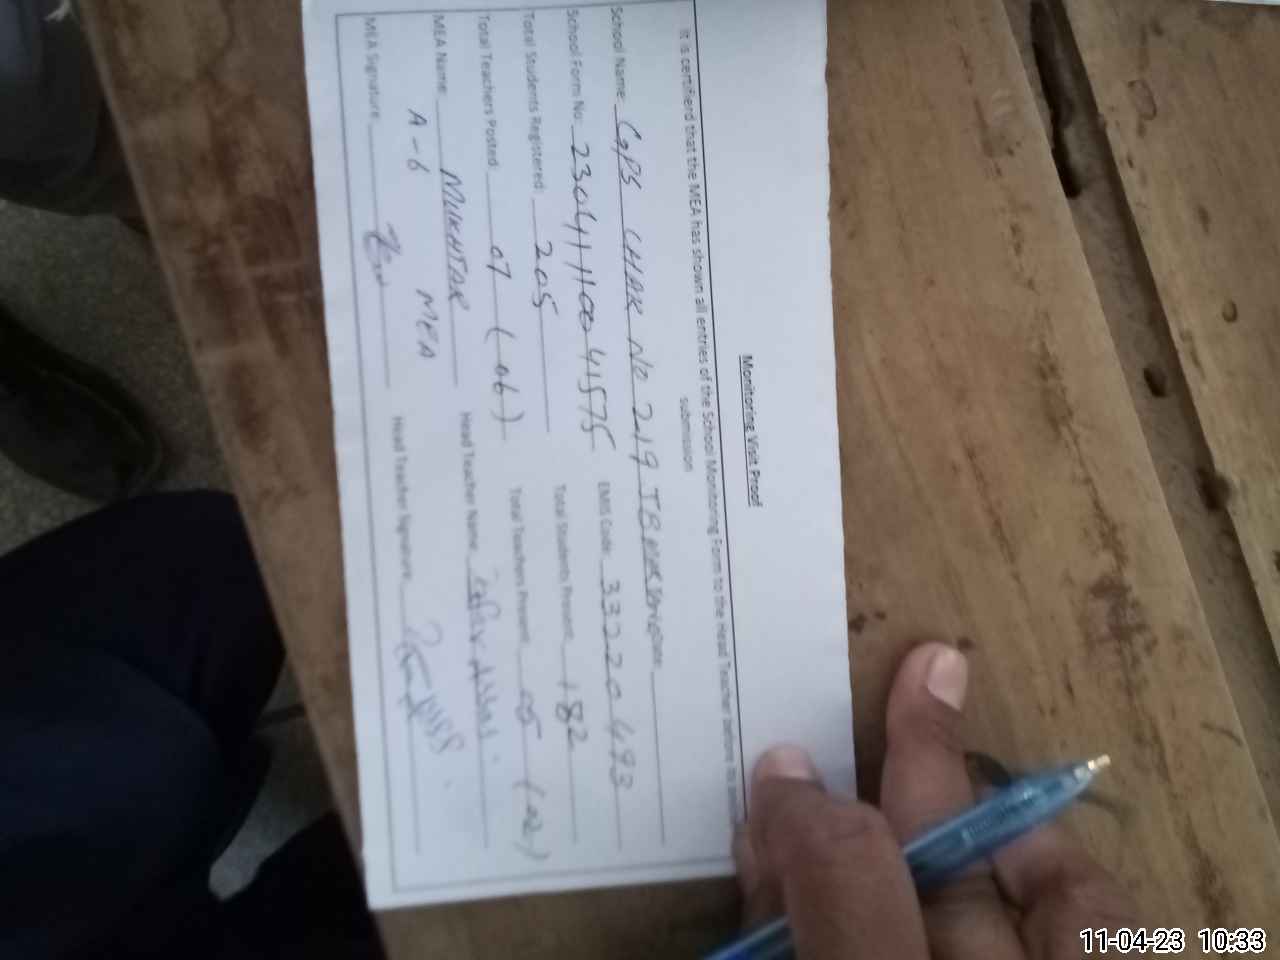 Monitoring Visit Proof
It is certifierd that the MEA has shown all entries of the School Monitoring Form to the Head Teacher before its
submission
School Name: GPS CHAK No 219 JB
School Form No: 2304110041575 EMIS Code: 33220493
Total Students Registered: 205 Total Students Present: 182
Total Teachers Posted: 07 (06) Total Teachers Present: 05 (02)
MEA Name: MUKHTAR Head Teacher Name: Zafar Abbas.
A-6 MEA
MEA Signature: Head Teacher Signature:
11-04-23 10:33